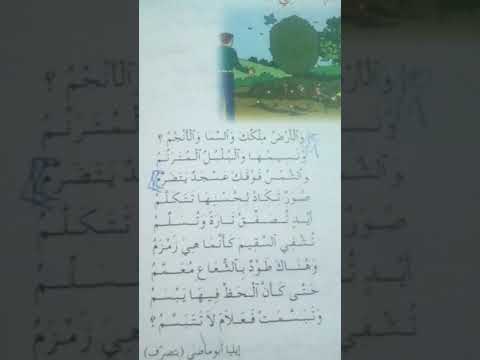 وَالْأَرْضُ مِلْكُكَ وَالسَّمَا وَالْأَنْجُمُ ؟
وَنَسِيمُهَا وَالْبُلْبُلُ الْمُتَرَنِّمُ
وَالشَّمْسُ فَوْقَكَ عَسْجَدٌ يَتَضَرَّمُ
صُوَرٌ تَكَادُ بِحُسْنِهَا تَتَكَلَّمُ
أَيْدٍ تُصَفِّقُ تَارَةً وَتُسَلِّمُ
تُشْفِي السَّقِيمَ كَأَنَّمَا هِيَ زَمْزَمُ
وَهُنَاكَ طَوْدٌ بِالشُّعَاعِ مُعَمَّمُ
حَتَّى كَأَنَّ الْحَظَّ فِيهَا يَبْسَمُ
وَتَبَسَّمَتْ فَعَلَامَ لَا تَتَبَسَّمُ ؟
إيليا أبو ماضي (بتصرف)